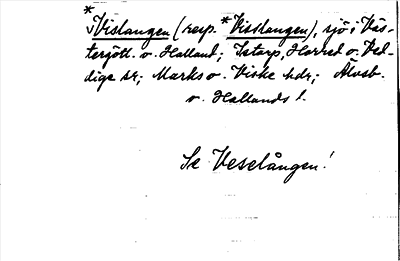 *Vislangen (resp. *Visslangen), sjö i Väs-
tergötl. o. Halland; Istorp, Horred o. Ved-
dige snr; Marks o. Viske hdr; Älvsb.
o. Hallands l.
Se Veselången!